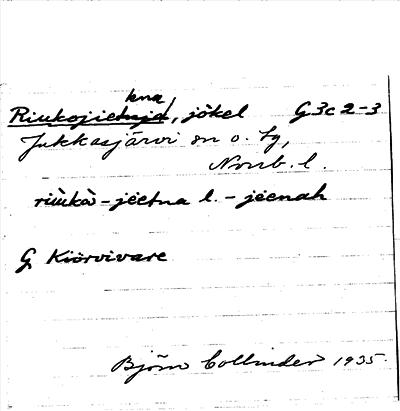 kna
Riukojietnja, jökel G3c2-3
Jukkasjärvi sn o. tg,
Norrb. l.
riùkà-jëetna l. -jëenah
G Kiörvivare
Björn Collinder 1935